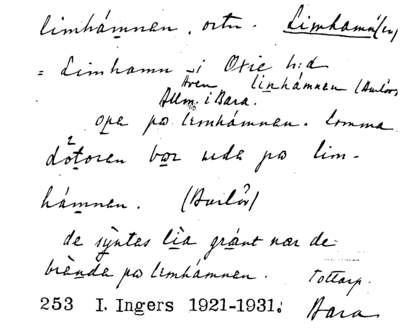 limhámnen, ortn. Limhamn(en)
= Limhamn i Oxie h:d
Även linhámnen (Burlöv)
Allm. i Bara.
opa po limhámnen. Lomma
dòtoren bor neda po lim-
hámnen. (Burlöv)
de sỳntes lìa gránt nær de
brènde po limhámnen. Tottarp.
253 I. Ingers 1921-1931. Bara